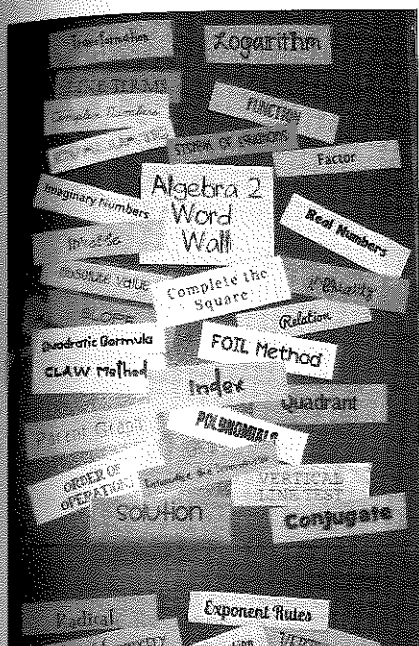 Transformation
Logarithm
LIKE TERMS
Complex Numbers
FUNCTION
SYSTEM OF EQUATIONS
Factor
Algebra 2
Word
Wall
Imaginary Numbers
Real Numbers
Inverse
Absolute Value
Complete the
Square
SLOPE
Relation
Quadratic Formula
FOIL Method
CLAW Method
Index
Quadrant
POLYNOMIALS
ORDER OF
OPERATIONS
VERTICAL
LINE TEST
Solution
Conjugate
Radical
Exponent Rules